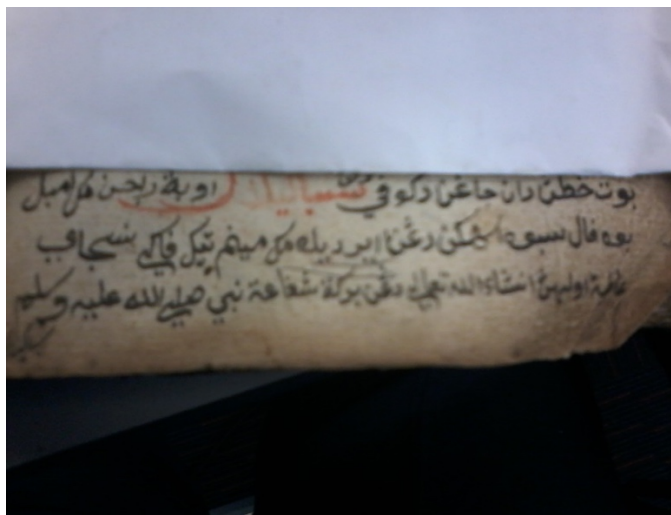 بوت خطن دان جاغن دكوفي اوبة ريحن مك امبل
بوه فال سبوه دغن اير مك مينم تيكل فاكي نسجاي
عافية اوليهن انشاء الله تعالى دغن بركة شفاعة نبي صلى الله عليه وسلم